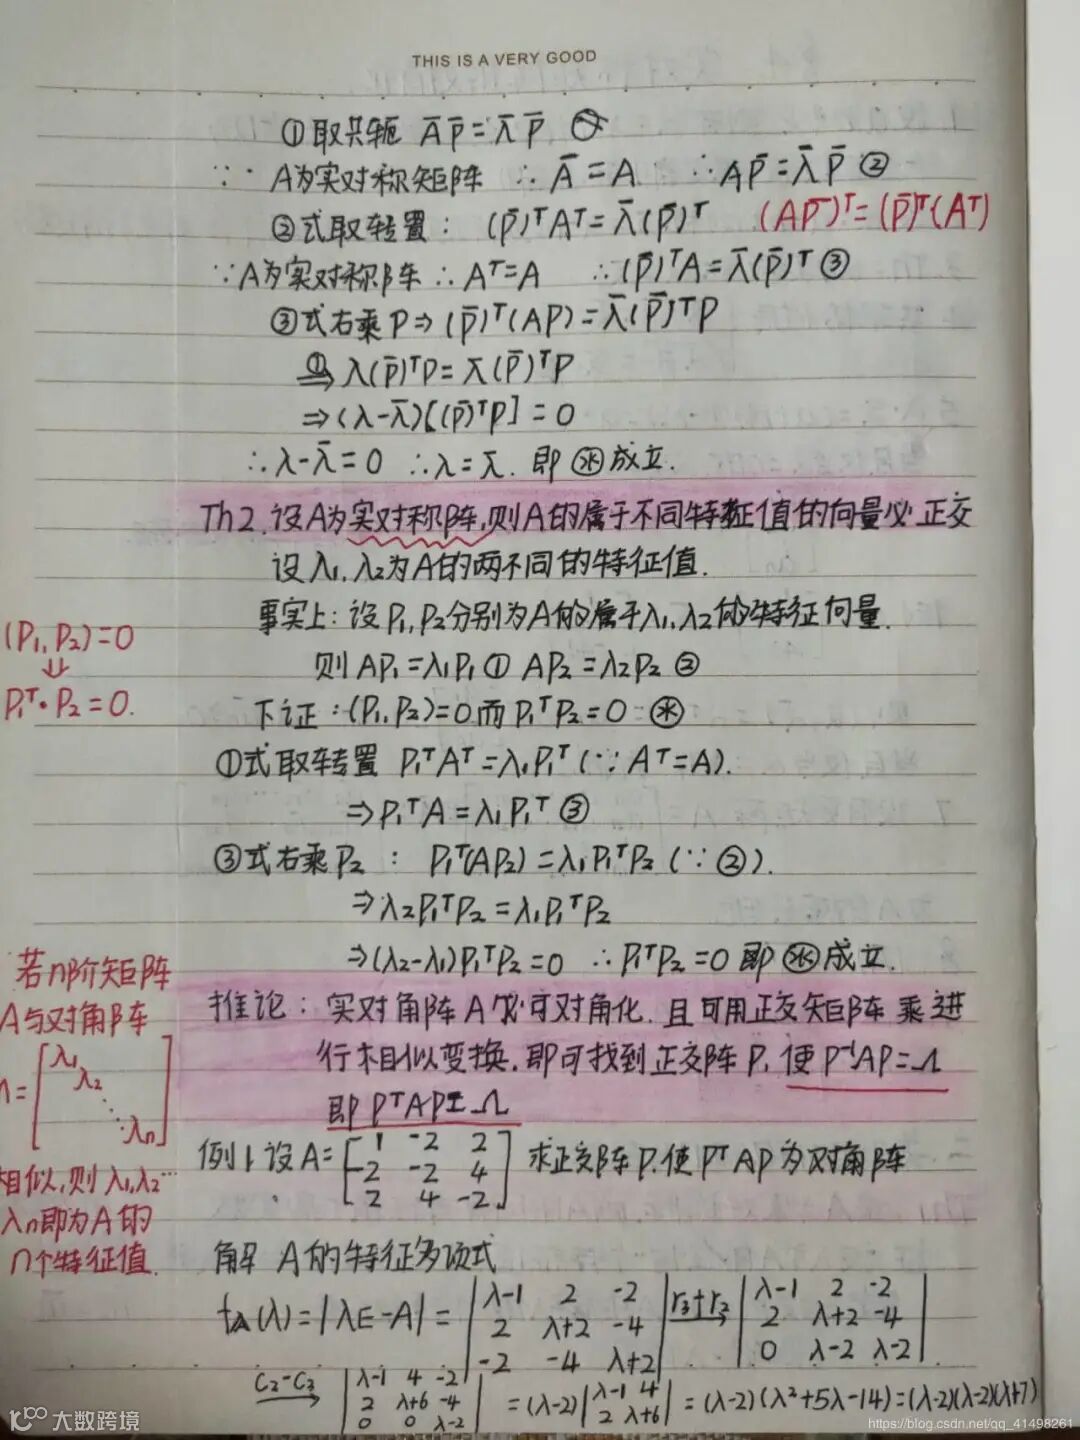 THIS IS A VERY GOOD
①取共轭 A̅p̅=λ̅p̅
∵ A为实对称矩阵 ∴ A̅=A ∴ Ap̅=λ̅p̅ ②
②式取转置: (p̅)ᵀAᵀ=λ̅(p̅)ᵀ (Ap̅)ᵀ=(p̅)ᵀ(Aᵀ)
∵A为实对称阵 ∴Aᵀ=A ∴(p̅)ᵀA=λ̅(p̅)ᵀ ③
③式右乘P⇒(p̅)ᵀ(AP)=λ̅(p̅)ᵀP
①⇒λ(p̅)ᵀP=λ̅(p̅)ᵀP
⇒(λ-λ̅)[(p̅)ᵀP]=0
∴λ-λ̅=0 ∴λ=λ̅. 即㊌成立.
Th2.设A为实对称阵,则A的属于不同特征值的向量必正交
设λ₁,λ₂为A的两不同的特征值.
事实上:设P₁,P₂分别为A的属于λ₁,λ₂的特征向量.
(P₁,P₂)=0
⇓
P₁ᵀ·P₂=0.
则AP₁=λ₁P₁① AP₂=λ₂P₂②
下证:(P₁,P₂)=0而P₁ᵀP₂=0 ㊌
①式取转置 P₁ᵀAᵀ=λ₁P₁ᵀ(∵Aᵀ=A).
⇒P₁ᵀA=λ₁P₁ᵀ③
③式右乘P₂: P₁ᵀ(AP₂)=λ₁P₁ᵀP₂(∵②).
⇒λ₂P₁ᵀP₂=λ₁P₁ᵀP₂
⇒(λ₂-λ₁)P₁ᵀP₂=0 ∴P₁ᵀP₂=0即㊌成立.
若n阶矩阵
A与对角阵
Λ=[λ₁
λ₂
⋱
λn]
相似,则λ₁,λ₂…
λn即为A的
n个特征值.
推论:实对角阵A必可对角化.且可用正交矩阵乘进
行相似变换.即可找到正交阵P,使P⁻¹AP=Λ
即PᵀAP=Λ
例1.设A=[1 -2 2
-2 -2 4
2 4 -2] 求正交阵P.使PᵀAP为对角阵
解 A的特征多项式
f_A(λ)=|λE-A|=|λ-1 2 -2
2 λ+2 -4
-2 -4 λ+2| r₃+r₂→ |λ-1 2 -2
2 λ+2 -4
0 λ-2 λ-2|
C₂-C₃→ |λ-1 4 -2
2 λ+6 -4
0 0 λ-2| =(λ-2)|λ-1 4
2 λ+6| =(λ-2)(λ²+5λ-14)=(λ-2)(λ-2)(λ+7)
大数跨境
https://blog.csdn.net/qq_41498261